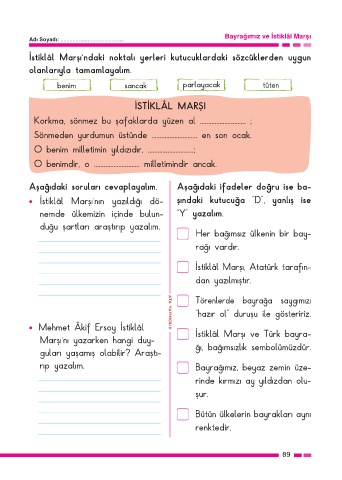 Adı Soyadı: ......................................
Bayrağımız ve İstiklâl Marşı
İstiklâl Marşı'ndaki noktalı yerleri kutucuklardaki sözcüklerden uygun
olanlarıyla tamamlayalım.
benim sancak parlayacak tüten
İSTİKLÂL MARŞI
Korkma, sönmez bu şafaklarda yüzen al ........................ ;
Sönmeden yurdumun üstünde ........................ en son ocak.
O benim milletimin yıldızıdır, ........................;
O benimdir, o ........................ milletimindir ancak.
Aşağıdaki soruları cevaplayalım.
• İstiklâl Marşı'nın yazıldığı dö-
nemde ülkemizin içinde bulun-
duğu şartları araştırıp yazalım.
• Mehmet Âkif Ersoy İstiklâl
Marşı'nı yazarken hangi duy-
guları yaşamış olabilir? Araştı-
rıp yazalım.
Aşağıdaki ifadeler doğru ise ba-
şındaki kutucuğa "D", yanlış ise
"Y" yazalım.
Her bağımsız ülkenin bir bay-
rağı vardır.
İstiklâl Marşı, Atatürk tarafın-
dan yazılmıştır.
Törenlerde bayrağa saygımızı
"hazır ol" duruşu ile gösteririz.
İstiklâl Marşı ve Türk bayra-
ğı, bağımsızlık sembolümüzdür.
Bayrağımız, beyaz zemin üze-
rinde kırmızı ay yıldızdan olu-
şur.
Bütün ülkelerin bayrakları aynı
renktedir.
89